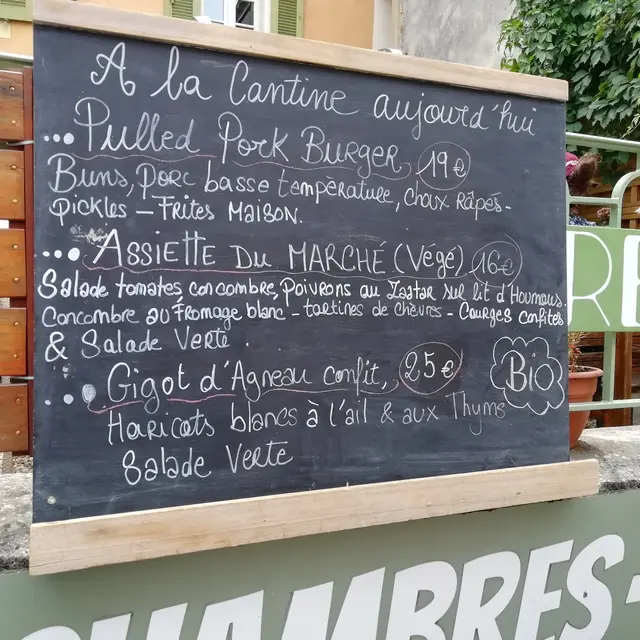 A la Cantine aujourd'hui
... Pulled Pork Burger 19€
Buns, porc basse tempèrature, choux Râpés -
Pickles - Frites Maison.
... Assiette Du MARCHÉ (Végé) 16€
Salade tomates concombre, Poivrons au Zaatar sur lit d'Houmous.
Concombre au Fromage blanc - tartines de chèvres - Courges confites
& Salade Verte.
... Gigot d'Agneau confit, 25€ Bio
Haricots blancs à l'ail & aux Thyms
Salade Verte
RE
CHAMBRES -